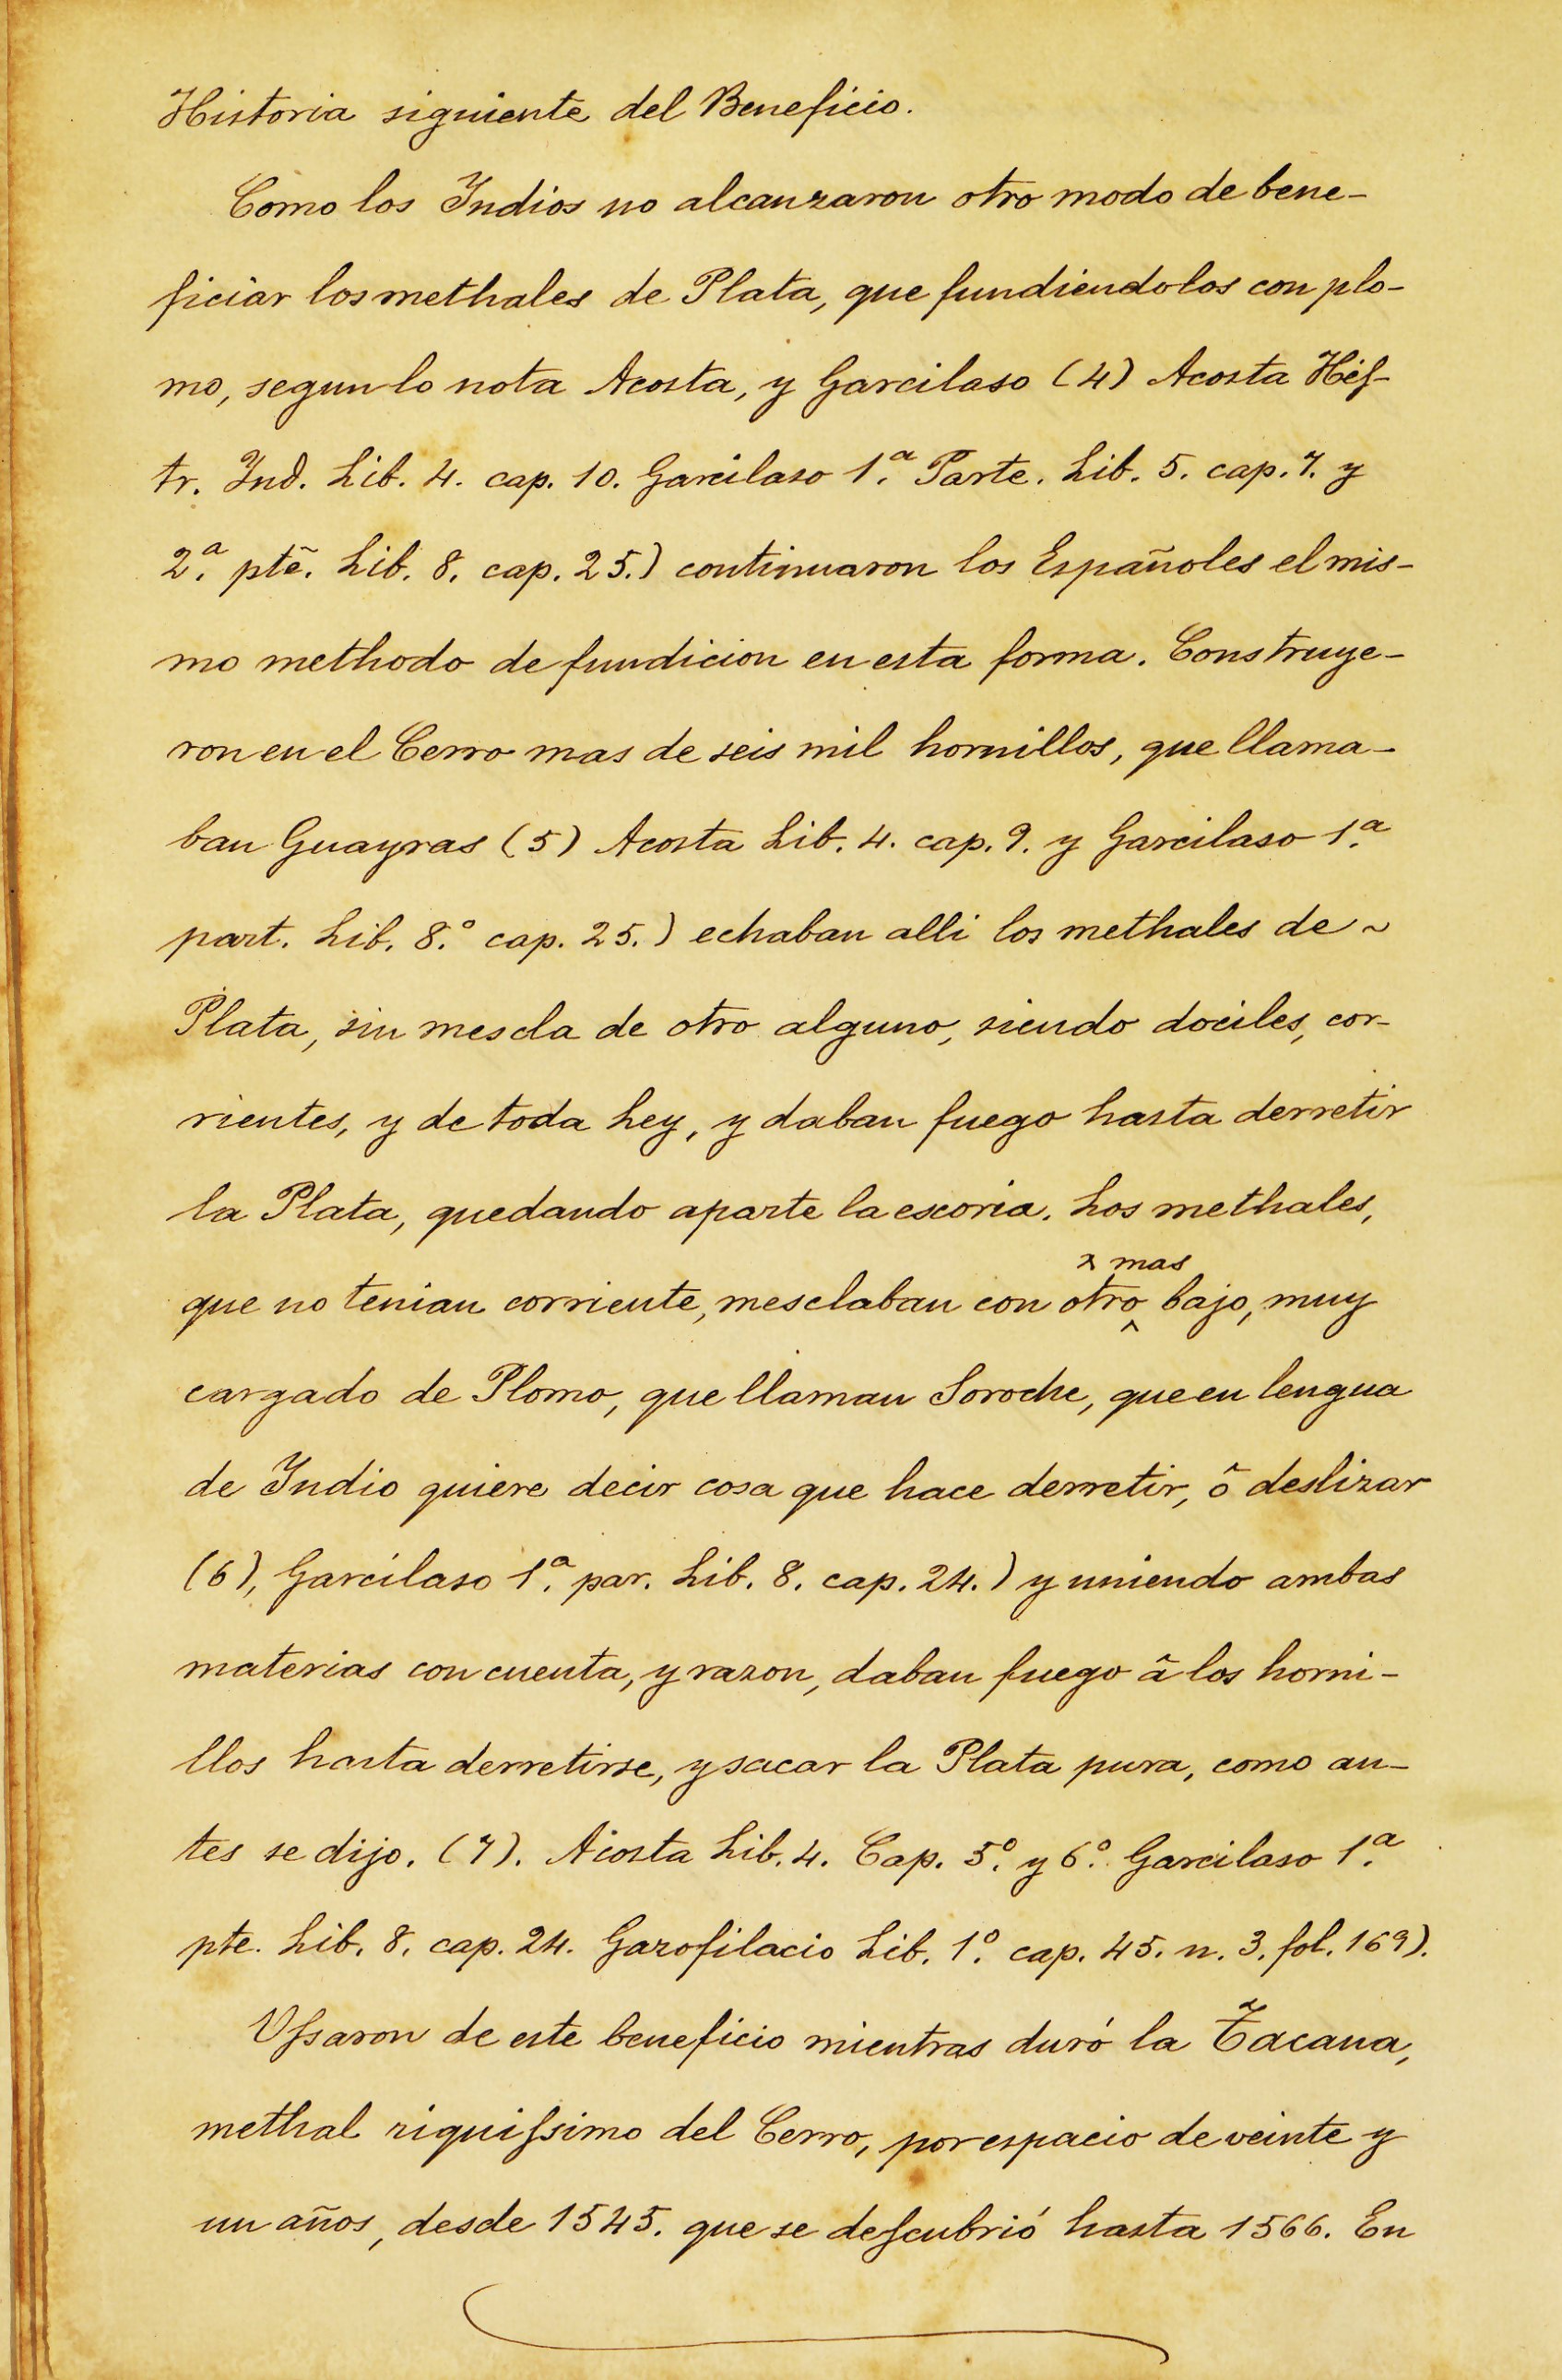 Historia siguiente del Beneficio.
Como los Indios no alcanzaron otro modo de bene-
ficiar los methales de Plata, que fundiendolos con plo-
mo, segun lo nota Acosta, y Garcilaso (4) Acosta Hiſ-
tr. Ind. Lib. 4. cap. 10. Garcilaso 1.ª Parte. Lib. 5. cap. 7. y
2.ª ptẽ. Lib. 8. cap. 25.) continuaron los Españoles el mis-
mo methodo de fundicion en esta forma. Construye-
ron en el Cerro mas de seis mil hornillos, que llama-
ban Guayras (5) Acosta Lib. 4. cap. 9. y Garcilaso 1.ª
part. Lib. 8.º cap. 25.) echaban alli los methales de ~
Plata, sin mescla de otro alguno, siendo dociles, cor-
rientes, y de toda Ley, y daban fuego hasta derretir
la Plata, quedando aparte la escoria. Los methales,
x mas
que no tenian corriente, mesclaban con otro ^ bajo, muy
cargado de Plomo, que llaman Soroche, que en lengua
de Indio quiere decir cosa que hace derretir, ô deslizar
(6), Garcilaso 1.ª par. Lib. 8. cap. 24.) y uniendo ambas
materias con cuenta, y razon, daban fuego â los horni-
llos hasta derretirse, y sacar la Plata pura, como an-
tes se dijo. (7). Acosta Lib. 4. Cap. 5.º y 6.º Garcilaso 1.ª
pte. Lib. 8. cap. 24. Gazofilacio Lib. 1.º cap. 45. n. 3. fol. 169).
Uſsaron de este beneficio mientras duró la Tacana,
methal riquiſsimo del Cerro, por espacio de veinte y
un años, desde 1545. que se deſcubrió hasta 1566. En